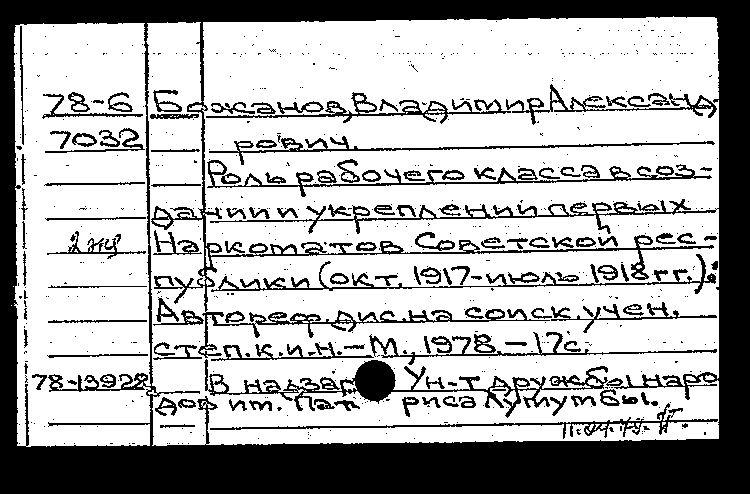 78-6 Божанов, Владимир Александ-
7032 рович.
Роль рабочего класса в соз-
дании и укреплении первых
2 экз Наркоматов Советской рес-
публики (окт. 1917-июль 1918 гг.).:
Автореф. дис. на соиск. учен.
степ. к.и.н. - М., 1978. - 17с.
78-13928 В надзаг Ун-т дружбы наро
дов им. Пат риса Лумумбы.